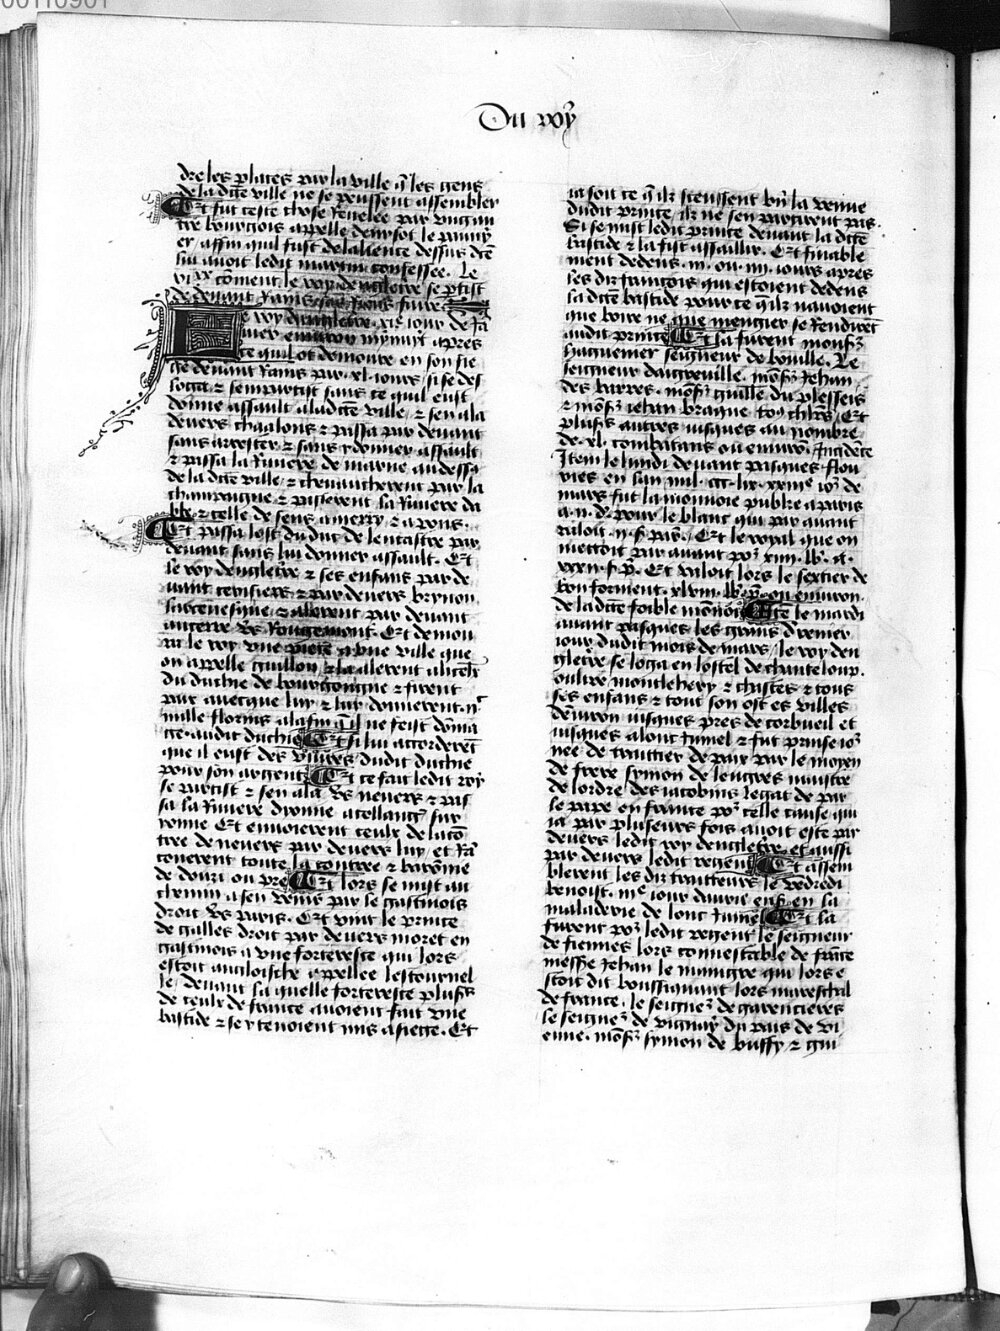 00110901
Du roy
dre les places par la ville q̃ les gens
de la dicte ville ne se peussent assembler
Et fut ceste chose reuelee par ung au
tre bourgois appelle denisot le pauuy
er affin quil fust delalience dessus dicte
lui auoit ledit martin confessee. Le
coment le roy dengleterre se ptist
de deuant Rains
Le roy dengleterre xie iour de Ja
uier enuiron mynuit apres
ce quil ot demoure en son sie
ge deuant Rains par .xl. iours si se des
loga & sen partist sans ce quil eust
donne assault a ladicte ville & sen ala
deuers chaalons & passa par deuant
sans arrester & sans y donner assault
& passa la Riuiere de marne audessus
de la dicte ville & cheuaucherent par la
champaigne & passerent la Riuiere da
be & celle de sens a merry & a pons.
Et passa lost du duc de lencastre par
deuant sans lui donner assault. Et
le roy dengleterre & ses enfans par de
uant & par deuers brynon
& alerent par deuant
aucerre vers Rougemont. Et demou
ra le roy une piece a une ville que
on appelle guillon & la alerent
du duchie de bourgoingne & furent
paix auecque luy & luy donnerent
mille florins a la fin q̃ il ne feist doma
ge audit duchie Et si lui accorderent
que il eust des viures dudit duchie
pour son argent Et ce fait ledit roy
se partist & sen ala vs neuers & pas
sa la Riuiere dyonne a collanges sur
yonne Et enuoierent ceulx de la con
tree de neuers par deuers luy et Ra
conerent toute la contree & baronnie
de donzi Et lors se mist au
chemin a sen venir par le gastinois
droit vs paris. Et vint le prince
de galles droit par deuers moret en
gastinois a une forteresce qui lors
estoit angloische appellee lestournel
le deuant la quelle forteresce plusrs
de ceulx de france auoient fait une
bastide & se y tenoient mis a siege. Et
ia soit ce q̃ ilz sceussent bn̄ la venue
dudit prince, ilz ne sen partirent pas.
Si se mist ledit prince deuant la dicte
bastide & la fist assaillir. Et finable
ment dedens .iii. ou .iiii. iours apres
les diz francois qui estoient dedens
la dicte bastide pour ce q̃ ilz nauoient
que boire ne que mengier se rendirent
audit prince Et la furent mons̃
haguenier seigneur de bouille. Le
seigneur daigreuille. mons̃ Jehan
des barres. mons̃ guille du plesseis
& mons̃ iehan braque to9 chlrs Et
plusrs autres iusques au nombre
de .xl. combatans ou enuiron. Incidence
Item le lundi deuant pasques flou
ries en lan mil .ccc. lix. xxiiie io2 de
mars fut la monnoie publiee a paris
pour le blanc qui par auant
valoit Et le royal que on
mettoit par auant
Et valoit lors le sextier de
bon forment .xlviii. lb. ou enuiron.
de la dicte foible monnoie Item le mardi
auant pasques les grans derrenier
iour dudit mois de mars / le roy den
gleterre se loga en lostel de chanteloup.
oultre montlehery & chastres & tous
ses enfans & tout son ost es villes
denuiron iusques pres de corbueil et
iusques a lonc iumel & fut prinse io2
nee de traittier de paix par le moyen
de frere symon de lengres maistre
de lordre des iacobins legat de par
le pape en france po2 celle cause qui
ia par pluseurs fois auoit este par
deuers ledit roy dengleterre et aussi
par deuers ledit regent Et assem
blerent les diz traitteurs le vedredi
benoist .iiie iour dauril en la
maladerie de lonc iumel Et la
furent po2 ledit regent le seigneur
de fiennes lors connestable de france
messe Jehan le maingre qui lors e
stoit dit boussiquaut lors mareschal
de france. le seigne2 de garencieres
le seigne2 de vignay du pais de vi
enne. mons̃ symon de bussy & gui